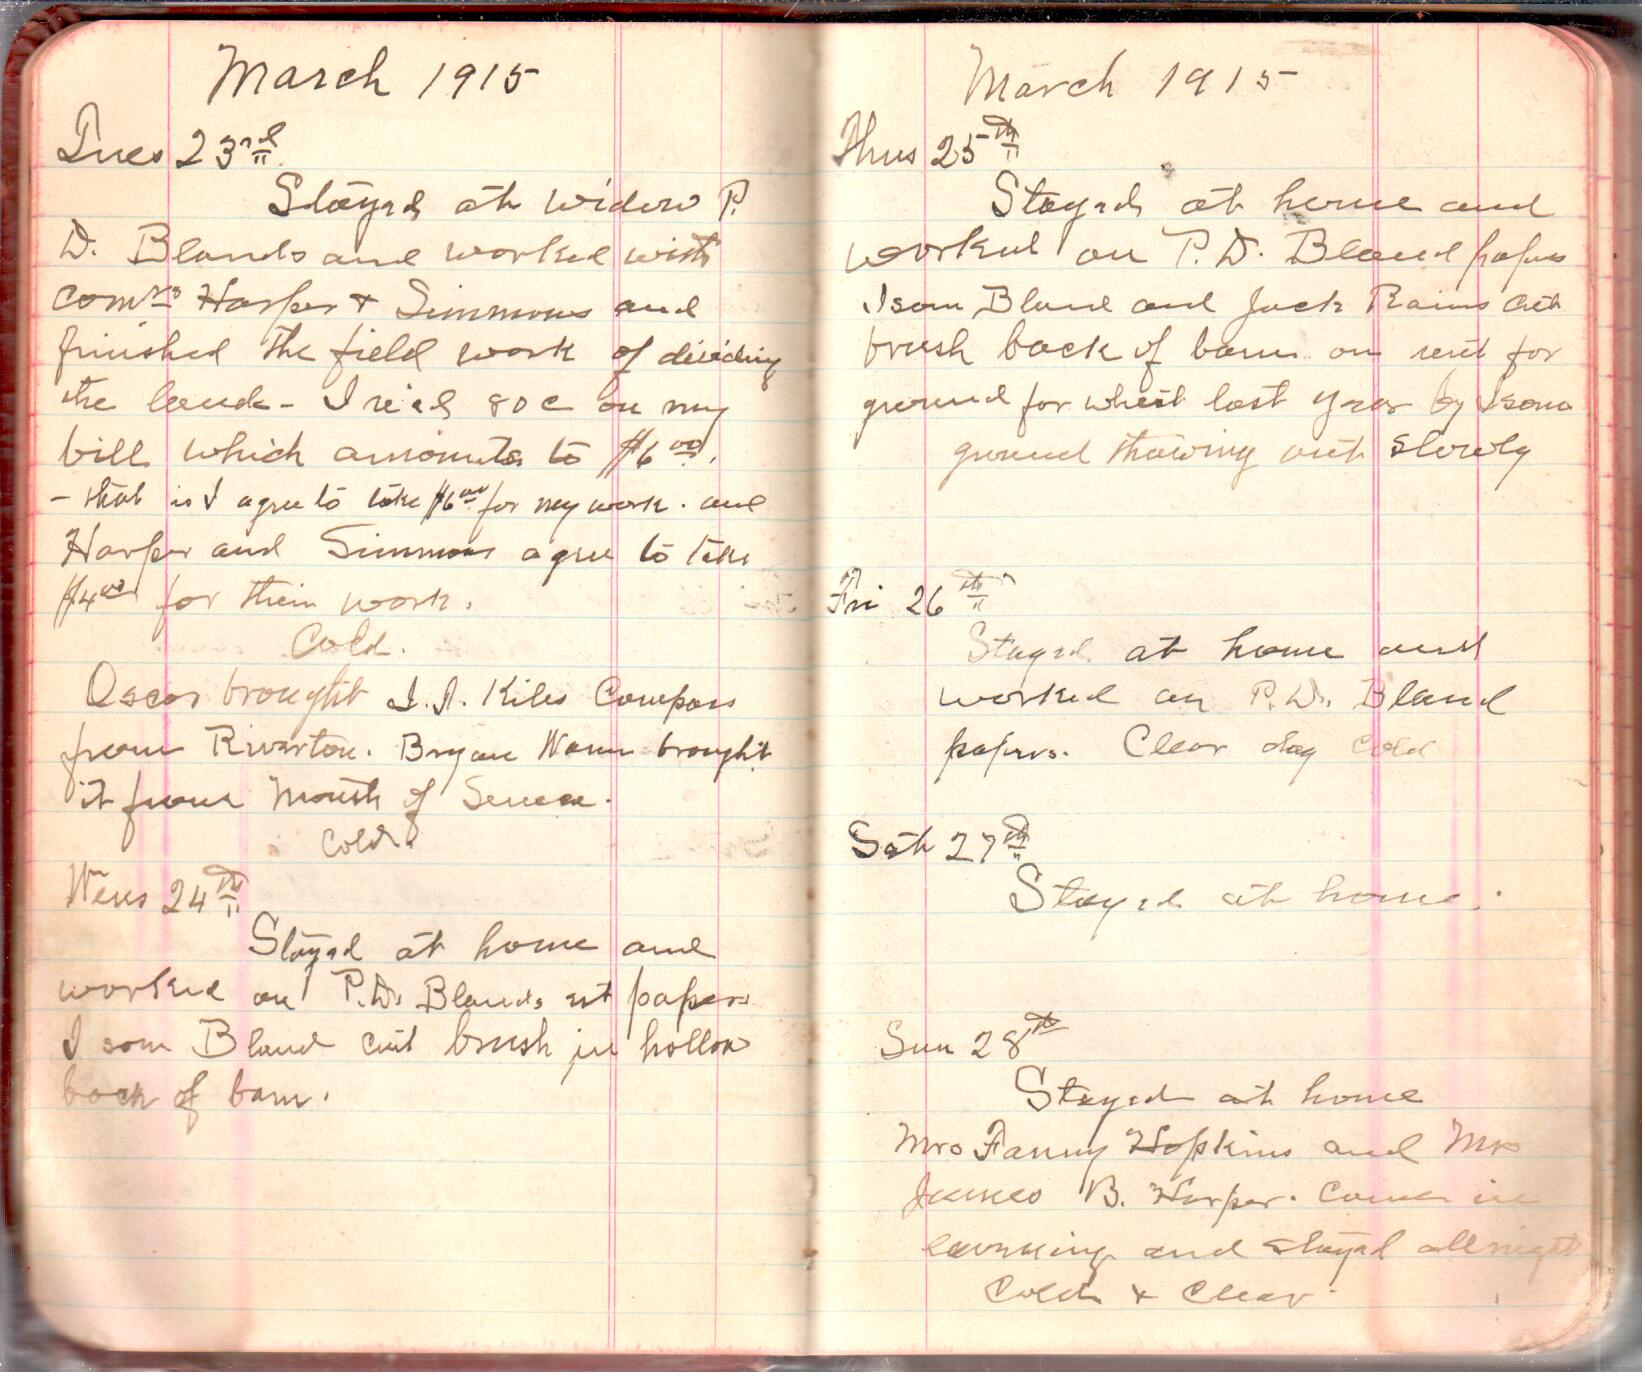 March 1915
Tues 23rd
Stayed at widow P.
D. Blands and worked with
comrs Harper + Simmons and
finished the field work of dividing
the land - I rec'd 80c on my
bill which amounts to $6.00.
- that is I agree to take $6.00 for my work. and
Harper and Simmons agree to take
$4.00 for their work.
Cold.
Oscar brought Kiles Compass
from Riverton. Bryan brought
it from Mouth of Seneca.
Cold.
Wens 24th
Stayed at home and
worked on P.D. Blands est papers
Isom Bland cut brush in hollow
back of barn.
March 1915
Thus 25th
Stayed at home and
worked on P.D. Bland papers
Isom Bland and Jack Rains cut
brush back of barn on rent for
ground for wheat last year by Isom
ground thawing out slowly
Fri 26th
Stayed at home and
worked on P.D. Bland
papers. Clear day cold
Sat 27th
Stayed at home.
Sun 28th
Stayed at home
Mrs Fanny Hopkins and Mrs
James B. Harper. Came in
evening and stayed all night
Cold + Clear.